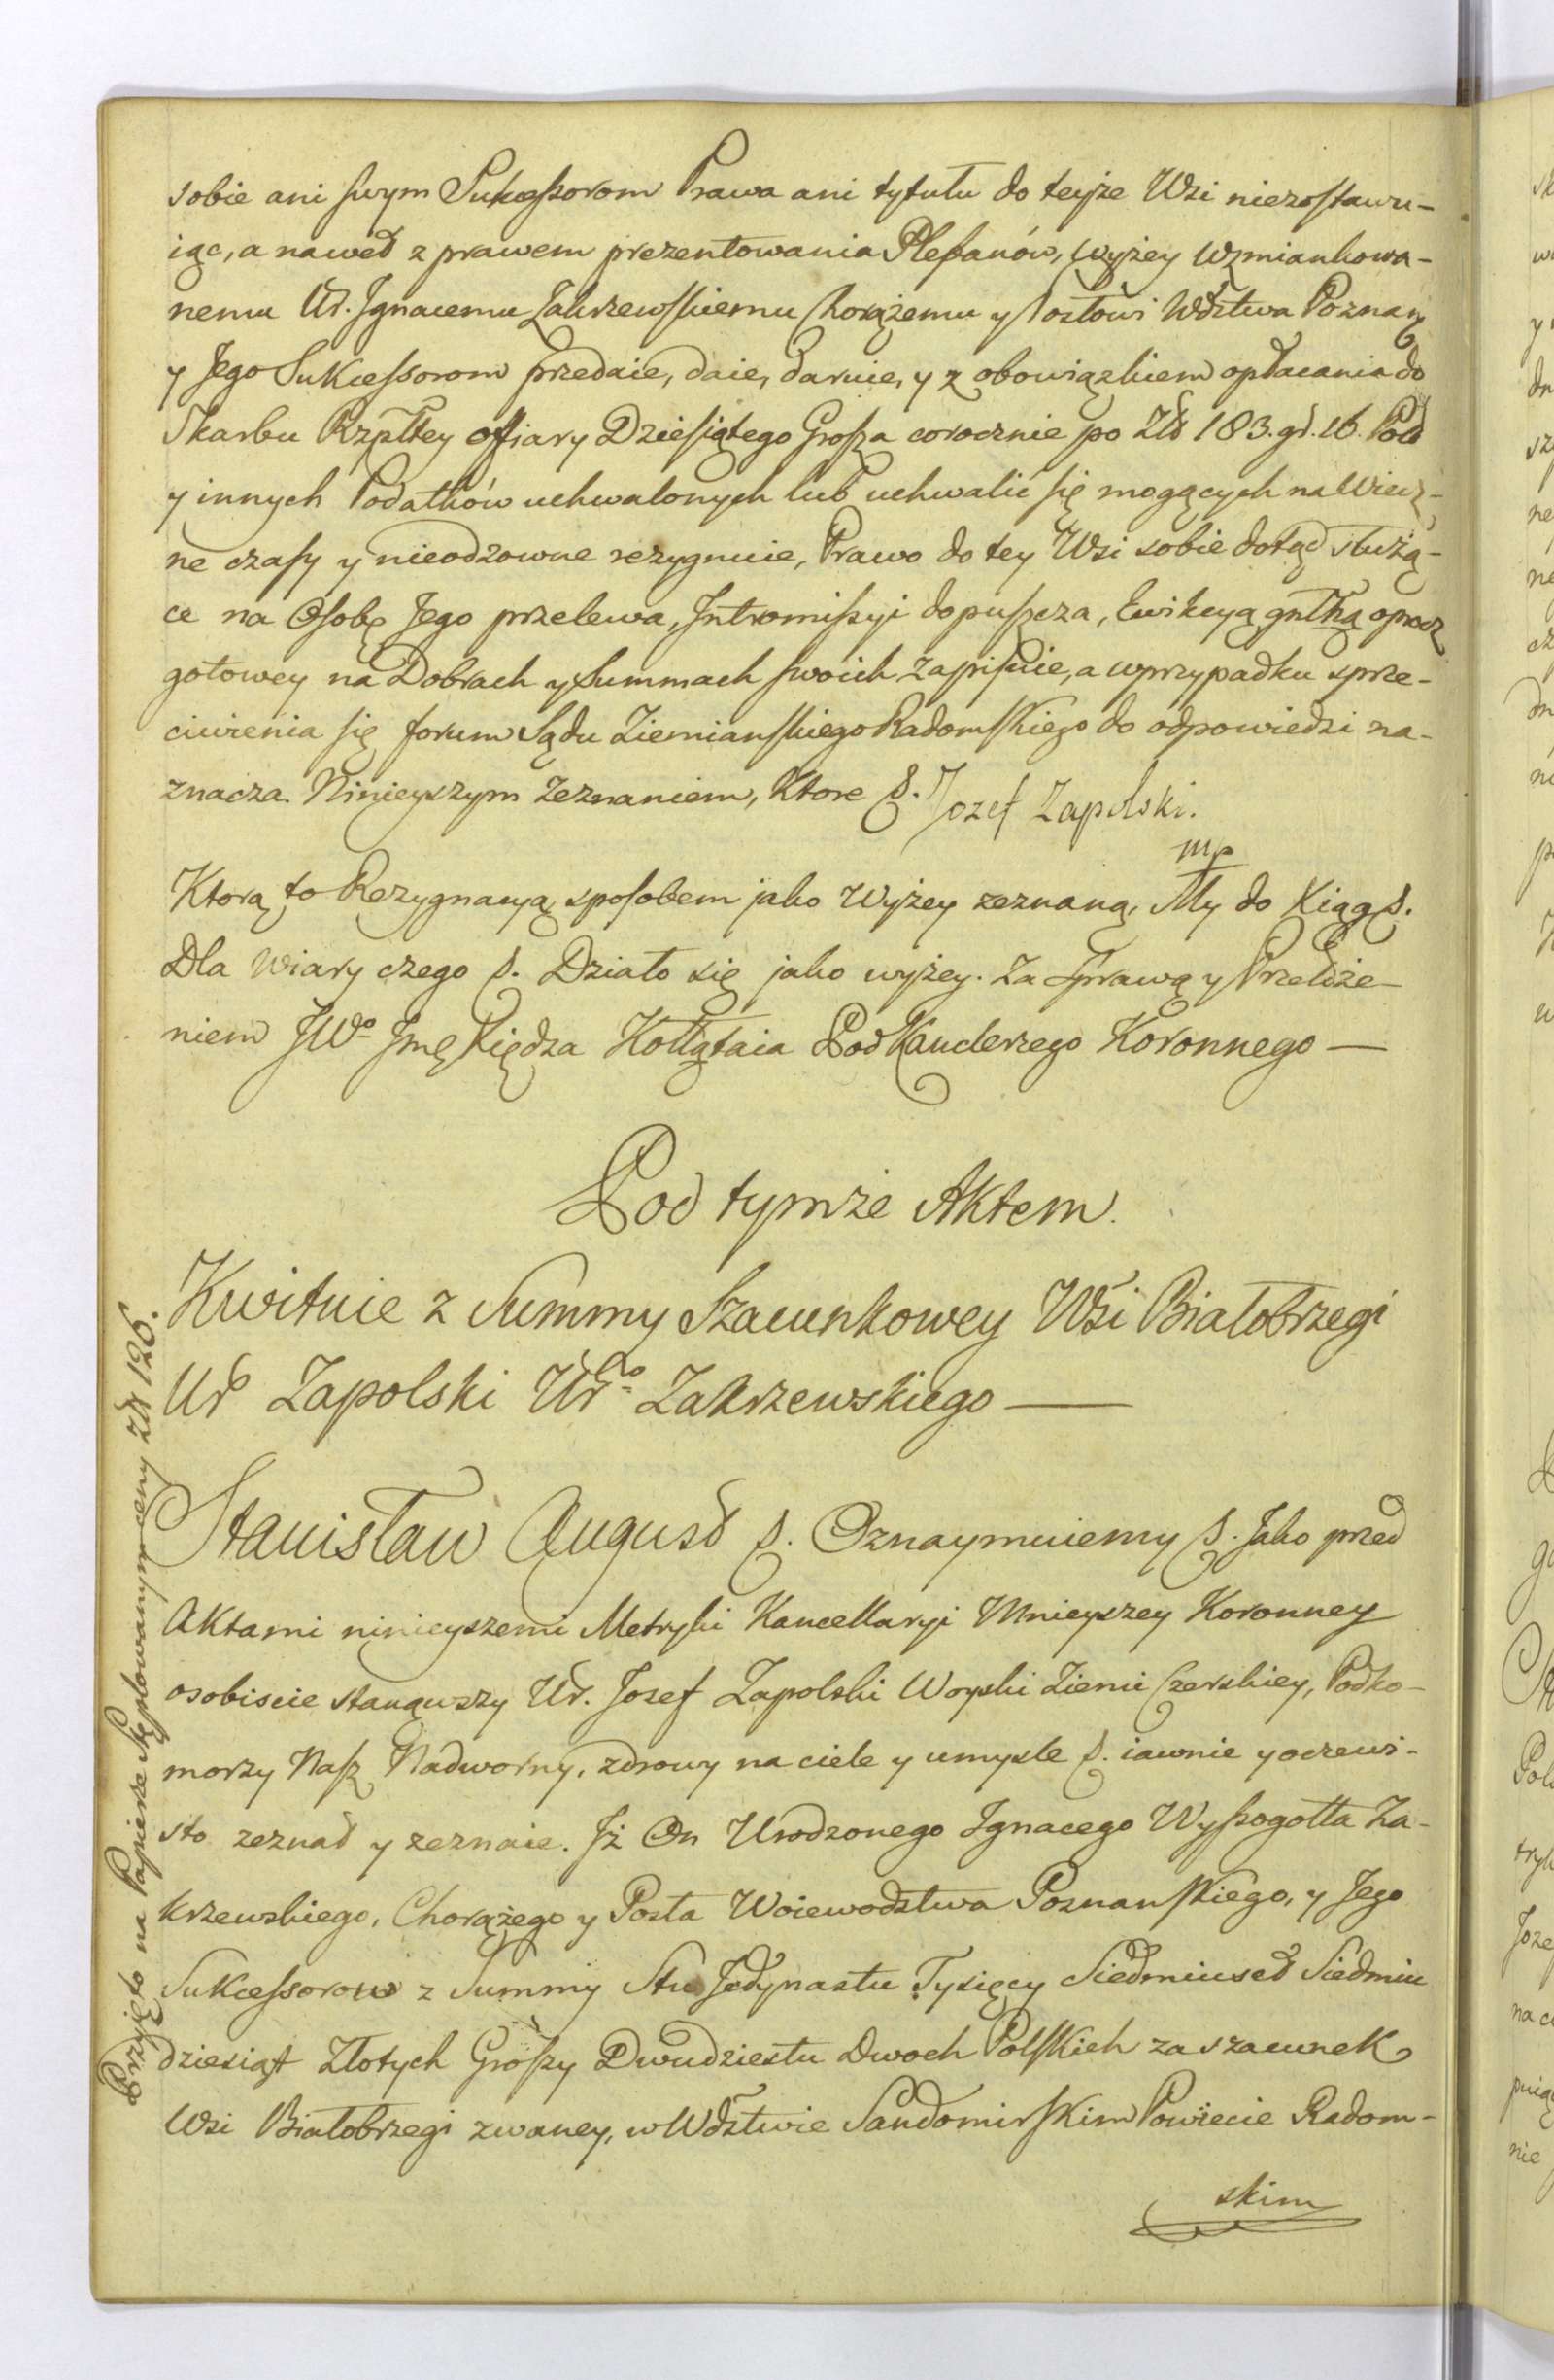 sobie ani swym Sukcessorom Prawa ani tytułu do teyże Wsi niezostawu-
iąc, a nawet z prawem prezentowania Plebanów, wyżey wzmiankowa-
nemu Ur. Jgnacemu Zakrzewskiemu Chorążemu y Posłowi Wdztwa Poznań
y Jego Sukcessorom przedaie, daie, daruie, y z obowiązkiem opłacania do
Skarbu Rzpltey offiary Dziesiątego Grosza corocznie po Złł 183. gr. 16. Pol
y innych Podatków uchwalonych lub uchwalić się mogących na Wiecz-
ne czasy y nieodzowne rezygnuie, Prawo do tey Wsi sobie dotąd służą-
ce na Osobę Jego przelewa, Jntromissyi dopuszcza, Ewikcyą gnlłną oprocz
gotowey na Dobrach y Summach swoich zapisuie, a w przypadku sprze-
ciwienia się forum Sądu Ziemianskiego Radomskiego do odpowiedzi na-
znacza. Ninieyszym Zeznaniem, Ktore &. Jozef Zapolski.
mp
Ktorą to Rezygnacyą, sposobem jako Wyżey zeznaną, My do Xiąg &.
Dla Wiary czego &. Działo się jako wyżey. Za Sprawą y Przełoże-
niem JWo Jmę Xiędza Kołłątaia PodKanclerzego Koronnego —
Pod tymże Aktem.
Kwituie z Summy Szacunkowey Wsi Białobrzegi
Ur Zapolski Uro Zakrzewskiego —
Stanisław August &. Oznaymuiemy &. Jako przed
Aktami ninieyszemi Metryki Kancellaryi Mnieyszey Koronney
osobiscie stanąwszy Ur. Jozef Zapolski Woyski Ziemi Czerskiey, Podko-
morzy Nasz Nadworny, zdrowy na ciele y umysle &. iawnie y oczewi-
sto zeznał y zeznaie. Jż On Urodzonego Jgnacego Wyssogotta Za-
krzewskiego, Chorążego y Posła Woiewodztwa Poznanskiego, y Jego
Sukcessorow z Summy Stu Jedynastu Tysięcy Siedmiuset Siedmiu
dziesiąt Złotych Groszy Dwudziestu Dwoch Polskich za szacunek
Wsi Białobrzegi zwaney, w Wdztwie Sandomirskim Powiecie Radom-
skim
Przyięto na Papierze Stęplowanym ceny złł 126.